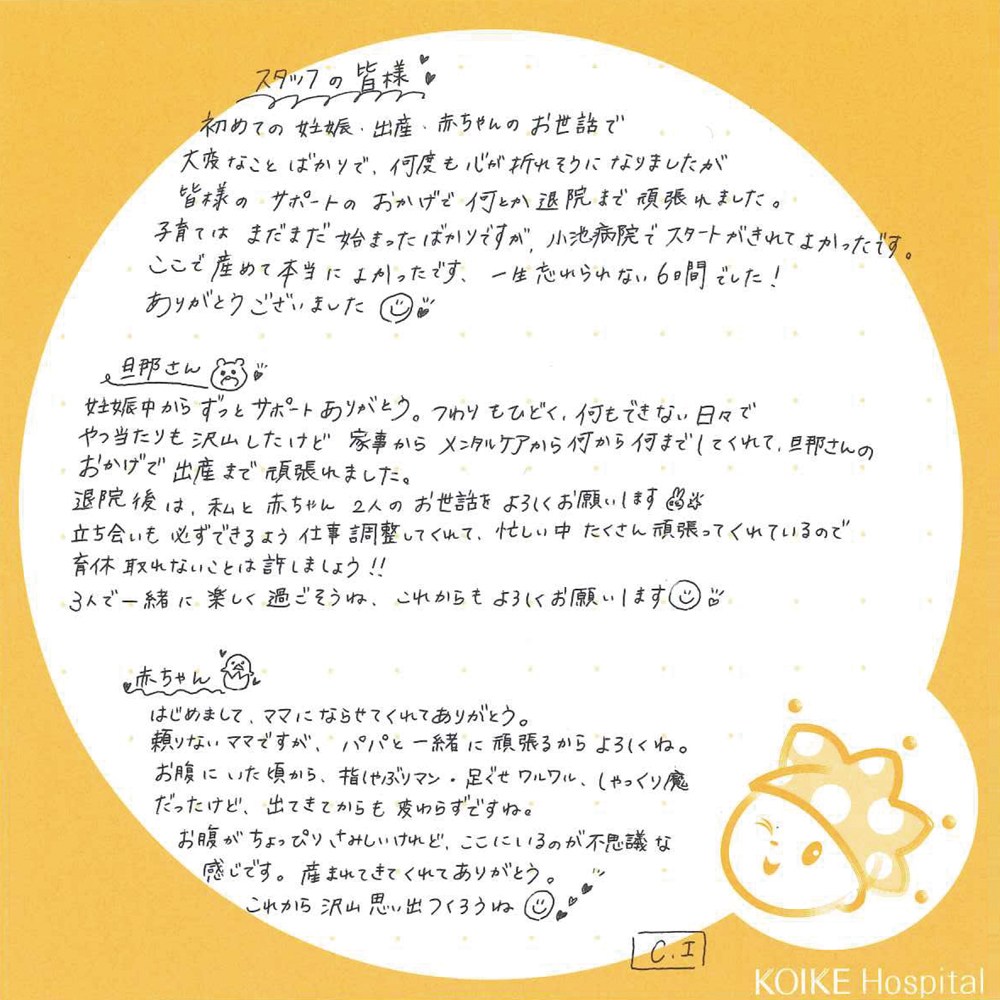 スタッフの皆様
初めての妊娠・出産・赤ちゃんのお世話で
大変なことばかりで、何度も心が折れそうになりましたが
皆様のサポートのおかげで何とか退院まで頑張れました。
子育てはまだまだ始まったばかりですが、小池病院でスタートがきれてよかったです。
ここで産めて本当によかったです、一生忘れられない6日間でした!
ありがとうございました
旦那さん
妊娠中からずっとサポートありがとう。つわりもひどく、何もできない日々で
やつ当たりも沢山したけど家事からメンタルケアから何から何までしてくれて、旦那さんの
おかげで出産まで頑張れました。
退院後は、私と赤ちゃん2人のお世話をよろしくお願いします
立ち会いも必ずできるよう仕事調整してくれて、忙しい中たくさん頑張ってくれているので
育休取れないことは許しましょう!!
3人で一緒に楽しく過ごそうね、これからもよろしくお願いします
赤ちゃん
はじめまして、ママにならせてくれてありがとう。
頼りないママですが、パパと一緒に頑張るからよろしくね。
お腹にいた頃から、指しゃぶりマン・足ぐせワルワル、しゃっくり魔
だったけど、出てきてからも変わらずですね。
お腹がちょっぴりさみしいけれど、ここにいるのが不思議な
感じです。産まれてきてくれてありがとう。
これから沢山思い出つくろうね
C.I
KOIKE Hospital